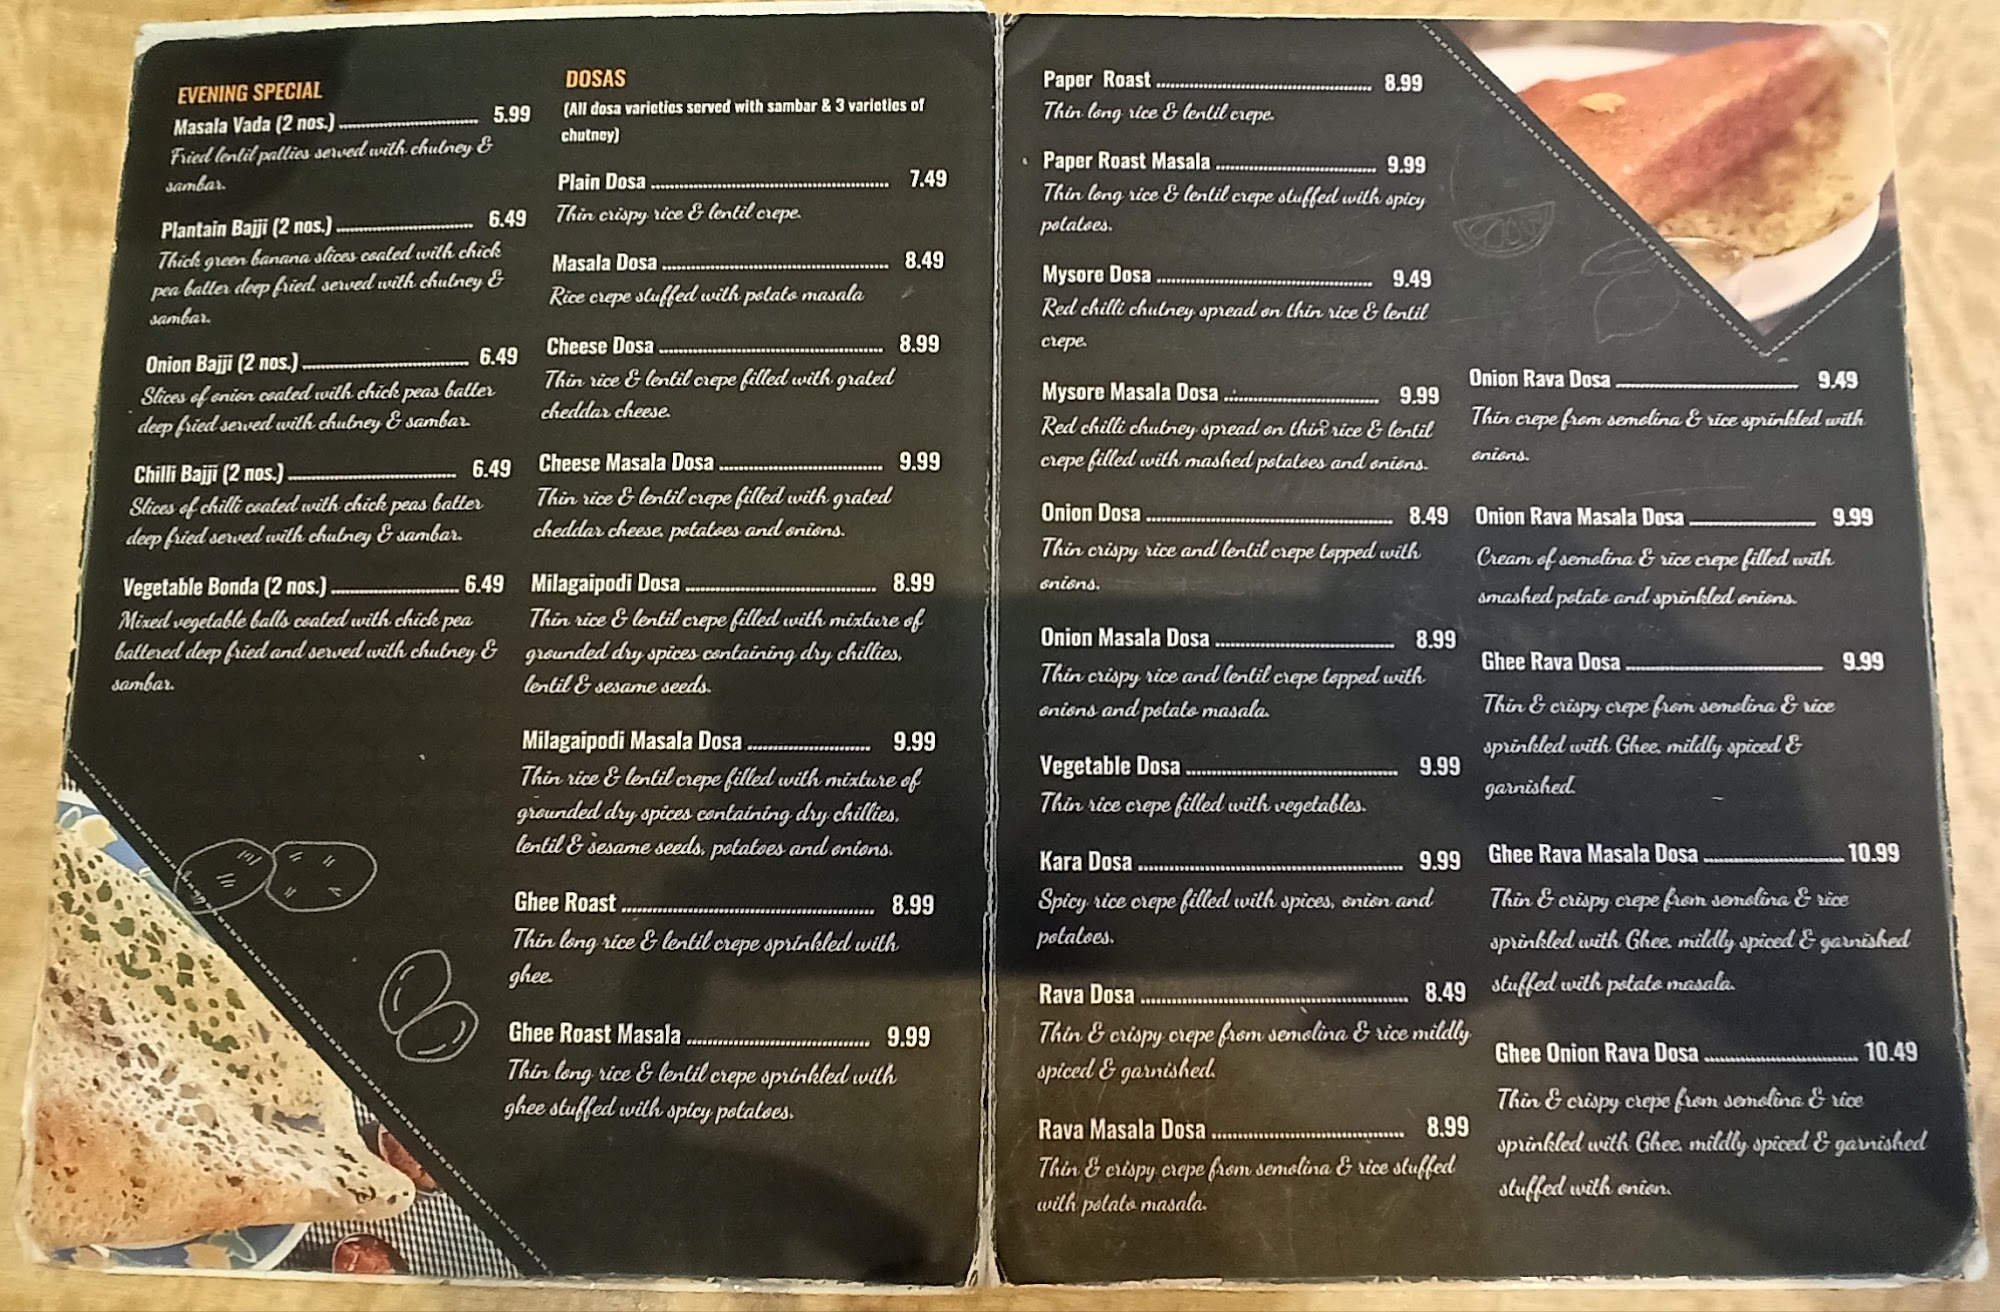 EVENING SPECIAL
Masala Vada (2 nos.) 5.99
Fried lentil patties served with chutney &
sambar.
Plantain Bajji (2 nos.) 6.49
Thick green banana slices coated with chick
pea batter deep fried. served with chutney &
sambar.
Onion Bajji (2 nos.) 6.49
Slices of onion coated with chick peas batter
deep fried served with chutney & sambar.
Chilli Bajji (2 nos.) 6.49
Slices of chilli coated with chick peas batter
deep fried served with chutney & sambar.
Vegetable Bonda (2 nos.) 6.49
Mixed vegetable balls coated with chick pea
battered deep fried and served with chutney &
sambar.
DOSAS
(All dosa varieties served with sambar & 3 varieties of
chutney)
Plain Dosa 7.49
Thin crispy rice & lentil crepe.
Masala Dosa 8.49
Rice crepe stuffed with potato masala
Cheese Dosa 8.99
Thin rice & lentil crepe filled with grated
cheddar cheese.
Cheese Masala Dosa 9.99
Thin rice & lentil crepe filled with grated
cheddar cheese, potatoes and onions.
Milagaipodi Dosa 8.99
Thin rice & lentil crepe filled with mixture of
grounded dry spices containing dry chillies,
lentil & sesame seeds.
Milagaipodi Masala Dosa 9.99
Thin rice & lentil crepe filled with mixture of
grounded dry spices containing dry chillies,
lentil & sesame seeds, potatoes and onions.
Ghee Roast 8.99
Thin long rice & lentil crepe sprinkled with
ghee.
Ghee Roast Masala 9.99
Thin long rice & lentil crepe sprinkled with
ghee stuffed with spicy potatoes.
Paper Roast 8.99
Thin long rice & lentil crepe.
Paper Roast Masala 9.99
Thin long rice & lentil crepe stuffed with spicy
potatoes.
Mysore Dosa 9.49
Red chilli chutney spread on thin rice & lentil
crepe.
Mysore Masala Dosa 9.99
Red chilli chutney spread on thin rice & lentil
crepe filled with mashed potatoes and onions.
Onion Dosa 8.49
Thin crispy rice and lentil crepe topped with
onions.
Onion Masala Dosa 8.99
Thin crispy rice and lentil crepe topped with
onions and potato masala.
Vegetable Dosa 9.99
Thin rice crepe filled with vegetables.
Kara Dosa 9.99
Spicy rice crepe filled with spices, onion and
potatoes.
Rava Dosa 8.49
Thin & crispy crepe from semolina & rice mildly
spiced & garnished.
Rava Masala Dosa 8.99
Thin & crispy crepe from semolina & rice stuffed
with potato masala.
Onion Rava Dosa 9.49
Thin crepe from semolina & rice sprinkled with
onions.
Onion Rava Masala Dosa 9.99
Cream of semolina & rice crepe filled with
smashed potato and sprinkled onions.
Ghee Rava Dosa 9.99
Thin & crispy crepe from semolina & rice
sprinkled with Ghee. mildly spiced &
garnished.
Ghee Rava Masala Dosa 10.99
Thin & crispy crepe from semolina & rice
sprinkled with Ghee. mildly spiced & garnished
stuffed with potato masala.
Ghee Onion Rava Dosa 10.49
Thin & crispy crepe from semolina & rice
sprinkled with Ghee. mildly spiced & garnished
stuffed with onion.